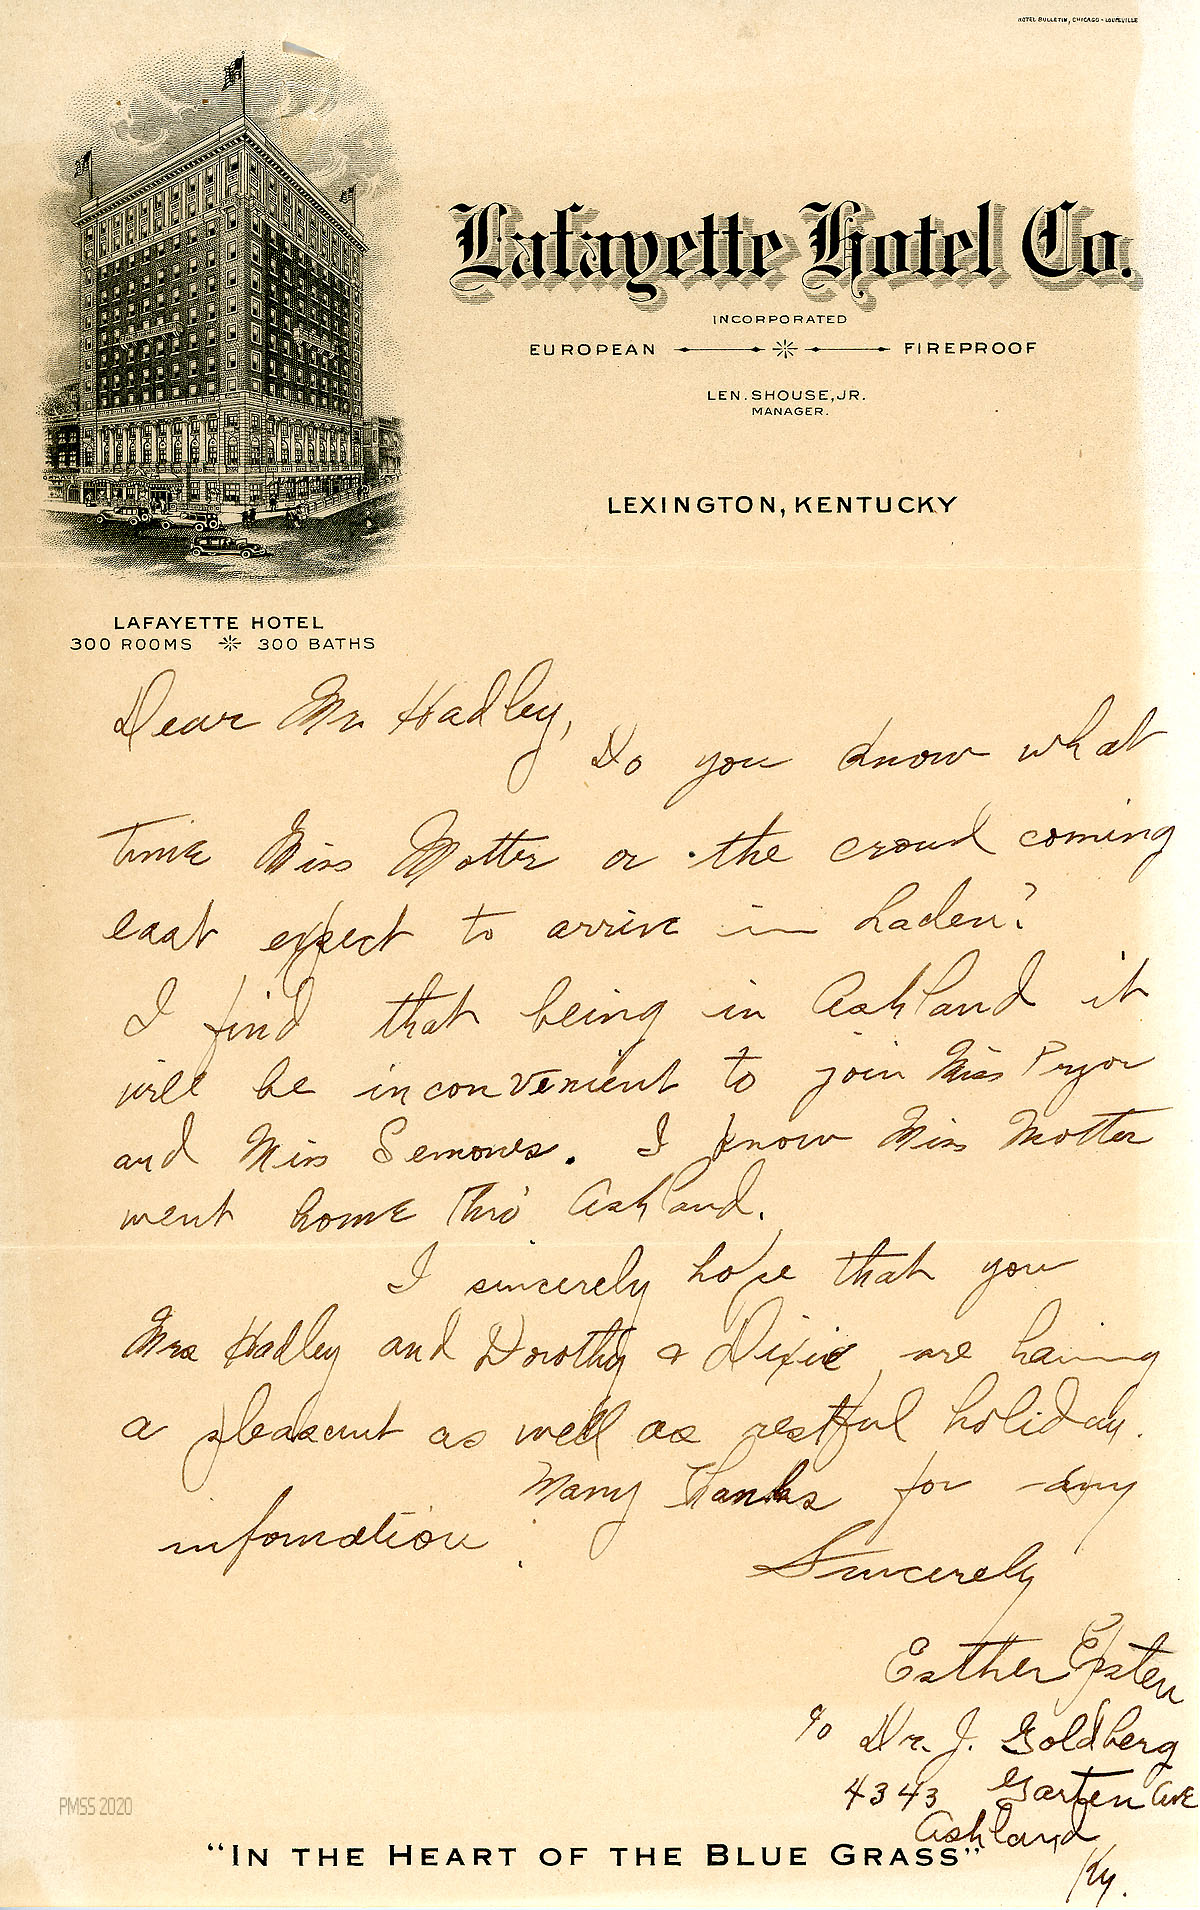 HOTEL BULLETIN, CHICAGO - LOUISVILLE
Lafayette Hotel Co.
INCORPORATED
EUROPEAN FIREPROOF
LEN. SHOUSE, JR.
MANAGER.
LEXINGTON, KENTUCKY
LAFAYETTE HOTEL
300 ROOMS 300 BATHS
Dear Mr Hadley,
Do you know what
time Miss Motter or the crowd coming
east expect to arrive in Laden?
I find that being in Ashland it
will be inconvenient to join Miss Pryor
and Miss Semones. I know Miss Motter
went home thro' Ashland.
I sincerely hope that you
Mrs Hadley and Dorothy & Dixie, are having
a pleasant as well as restful holiday.
Many thanks for any
information.
Sincerely
Esther Epsten
c/o Dr. J. Goldberg
4343 Garten Ave
Ashland
Ky.
PMSS 2020
"IN THE HEART OF THE BLUE GRASS"